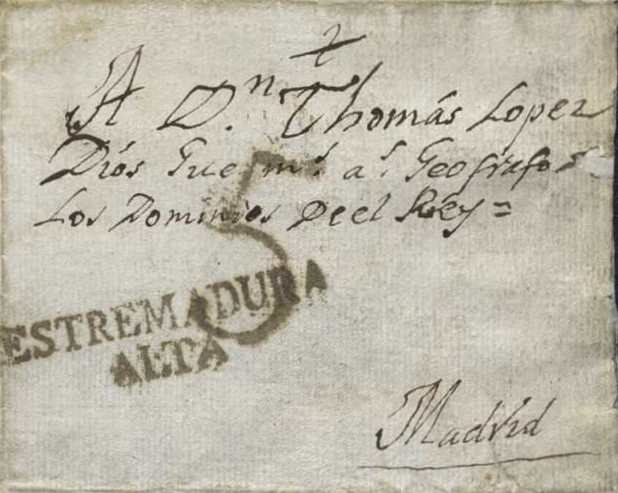 A D.n Thomás Lopez
Dios Gue m.s a.s Geografo
Los Dominios Deel Rey=
5
ESTREMADURA
ALTA
Madrid